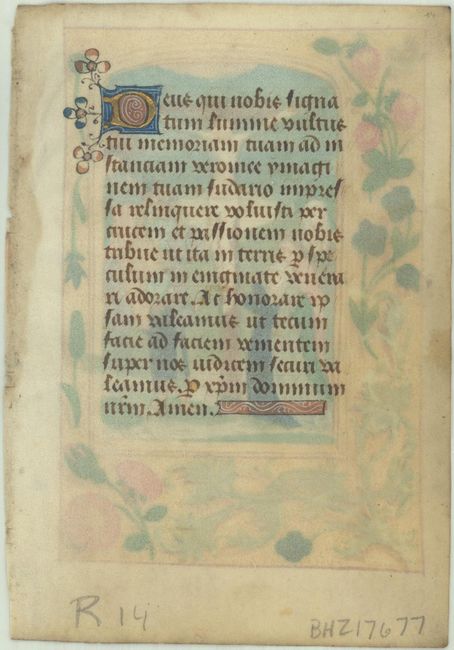 Deus qui nobis signa
tum lumine vultus
tui memoriam tuam ad in
stanciam veronice ymagi
nem tuam sudario impres
sa relinquere voluisti per
crucem et passionem nobis
tribue ut ita in terris p spe
culum in enigmate venera
ri adorare. Ac honorare ip
sam valeamus ut tecum
facie ad faciem venientem
super nos iudicem securi va
leamus. p xpm dominum
nrm. Amen.
R 14
BHZ17677